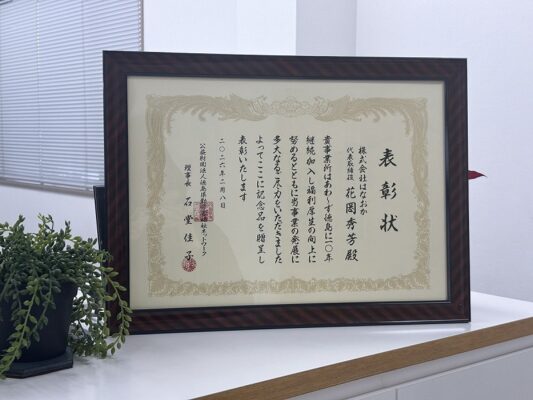 表彰状
株式会社はなおか
代表取締役 花岡秀芳殿
貴事業所はあわ〜ず徳島に一〇年
継続加入し福利厚生の向上に
努めるとともに当事業の発展に
多大なるご尽力をいただきました
よってここに記念品を贈呈し
表彰いたします
二〇二六年二月八日
公益財団法人徳島県勤労者福祉ネットワーク
理事長 石堂佳子